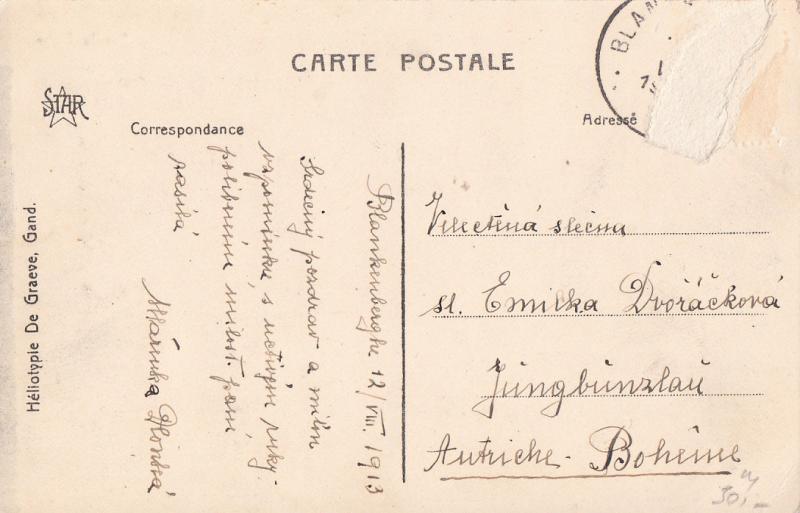 CARTE POSTALE
STAR
Correspondance
Adresse
BLAN
Héliotypie De Graeve, Gand.
Blankenberghe 12/VIII. 1913
Srdečný pozdrav a milou
vzpomínku, s uctivým ruky-
políbením milost. paní
zasílá
Mařenka
Velectěná slečna
sl. Emilka Dvořáčková
Jungbunzlau
Autriche - Bohème
30,-